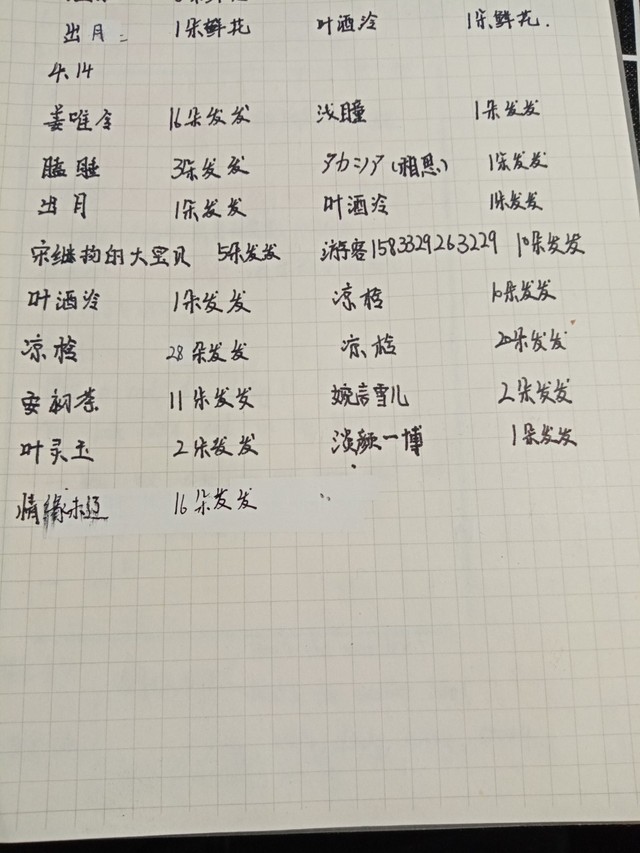 出月 1朵鲜花 叶酒冷 1朵鲜花.
4.14
姜唯令 16朵发发 浅瞳 1朵发发
瞌睡 3朵发发 アカシア(相思) 1朵发发
出月 1朵发发 叶酒冷 1朵发发
宋继扬的大宝贝 5朵发发 游客1583329263229 10朵发发
叶酒冷 1朵发发 凉栀 10朵发发
凉栀 28朵发发 凉栀 20朵发发
安初荼 11朵发发 婉言雪儿 2朵发发
叶灵玉 2朵发发 淡颜一博 1朵发发
情缘未 16朵发发